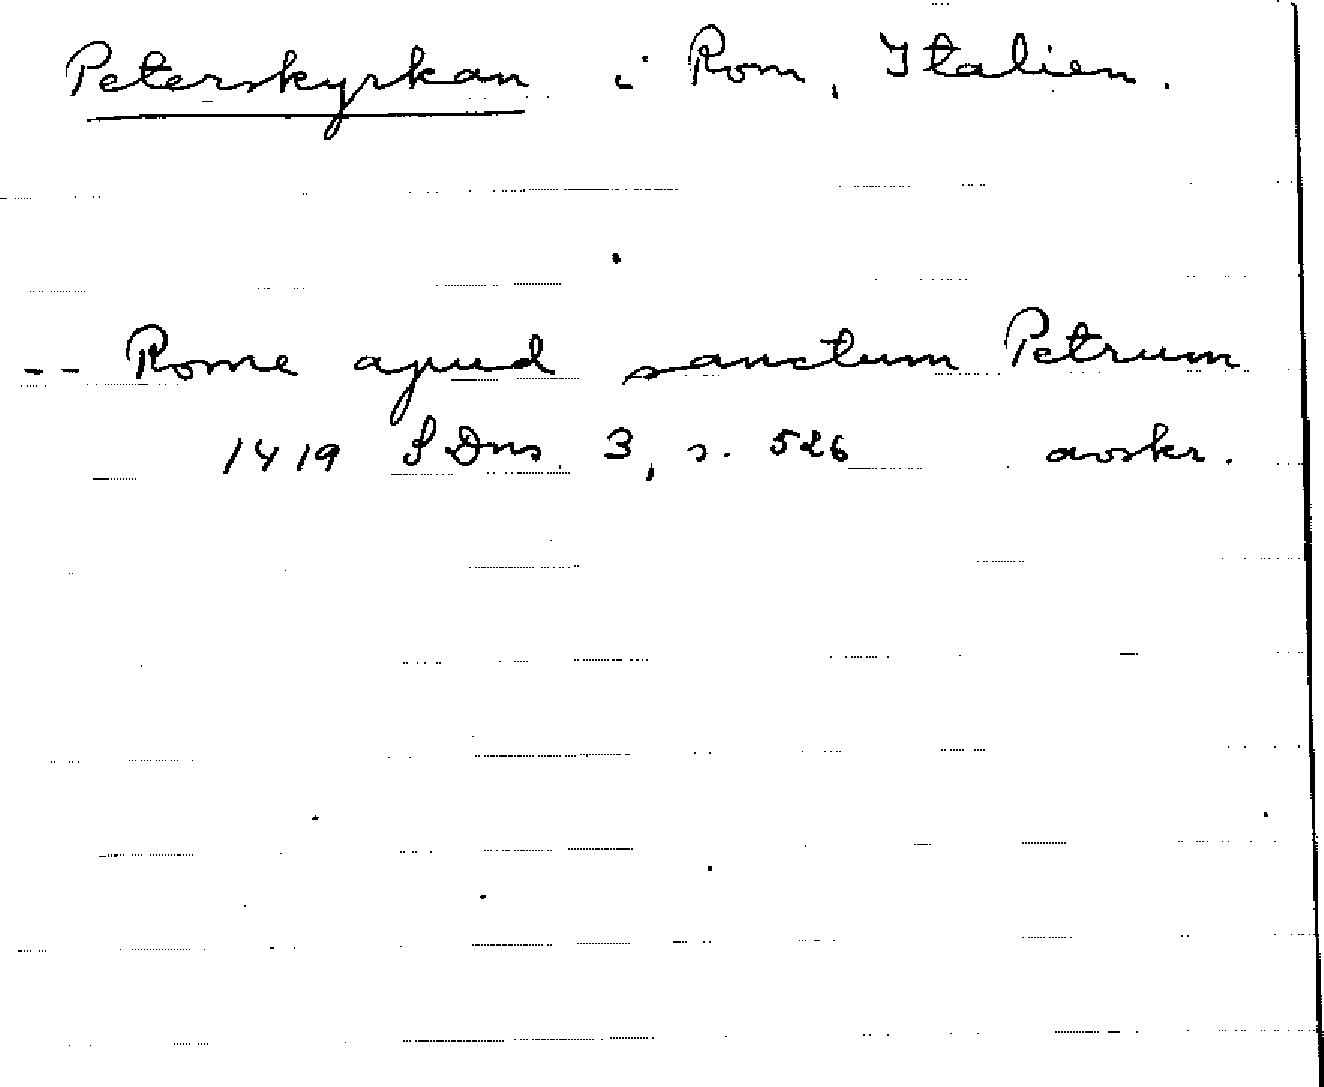 Peterskyrkan i Rom, Italien.
-- Rome apud sanctum Petrum
1419 SDns 3, s. 526 avskr.